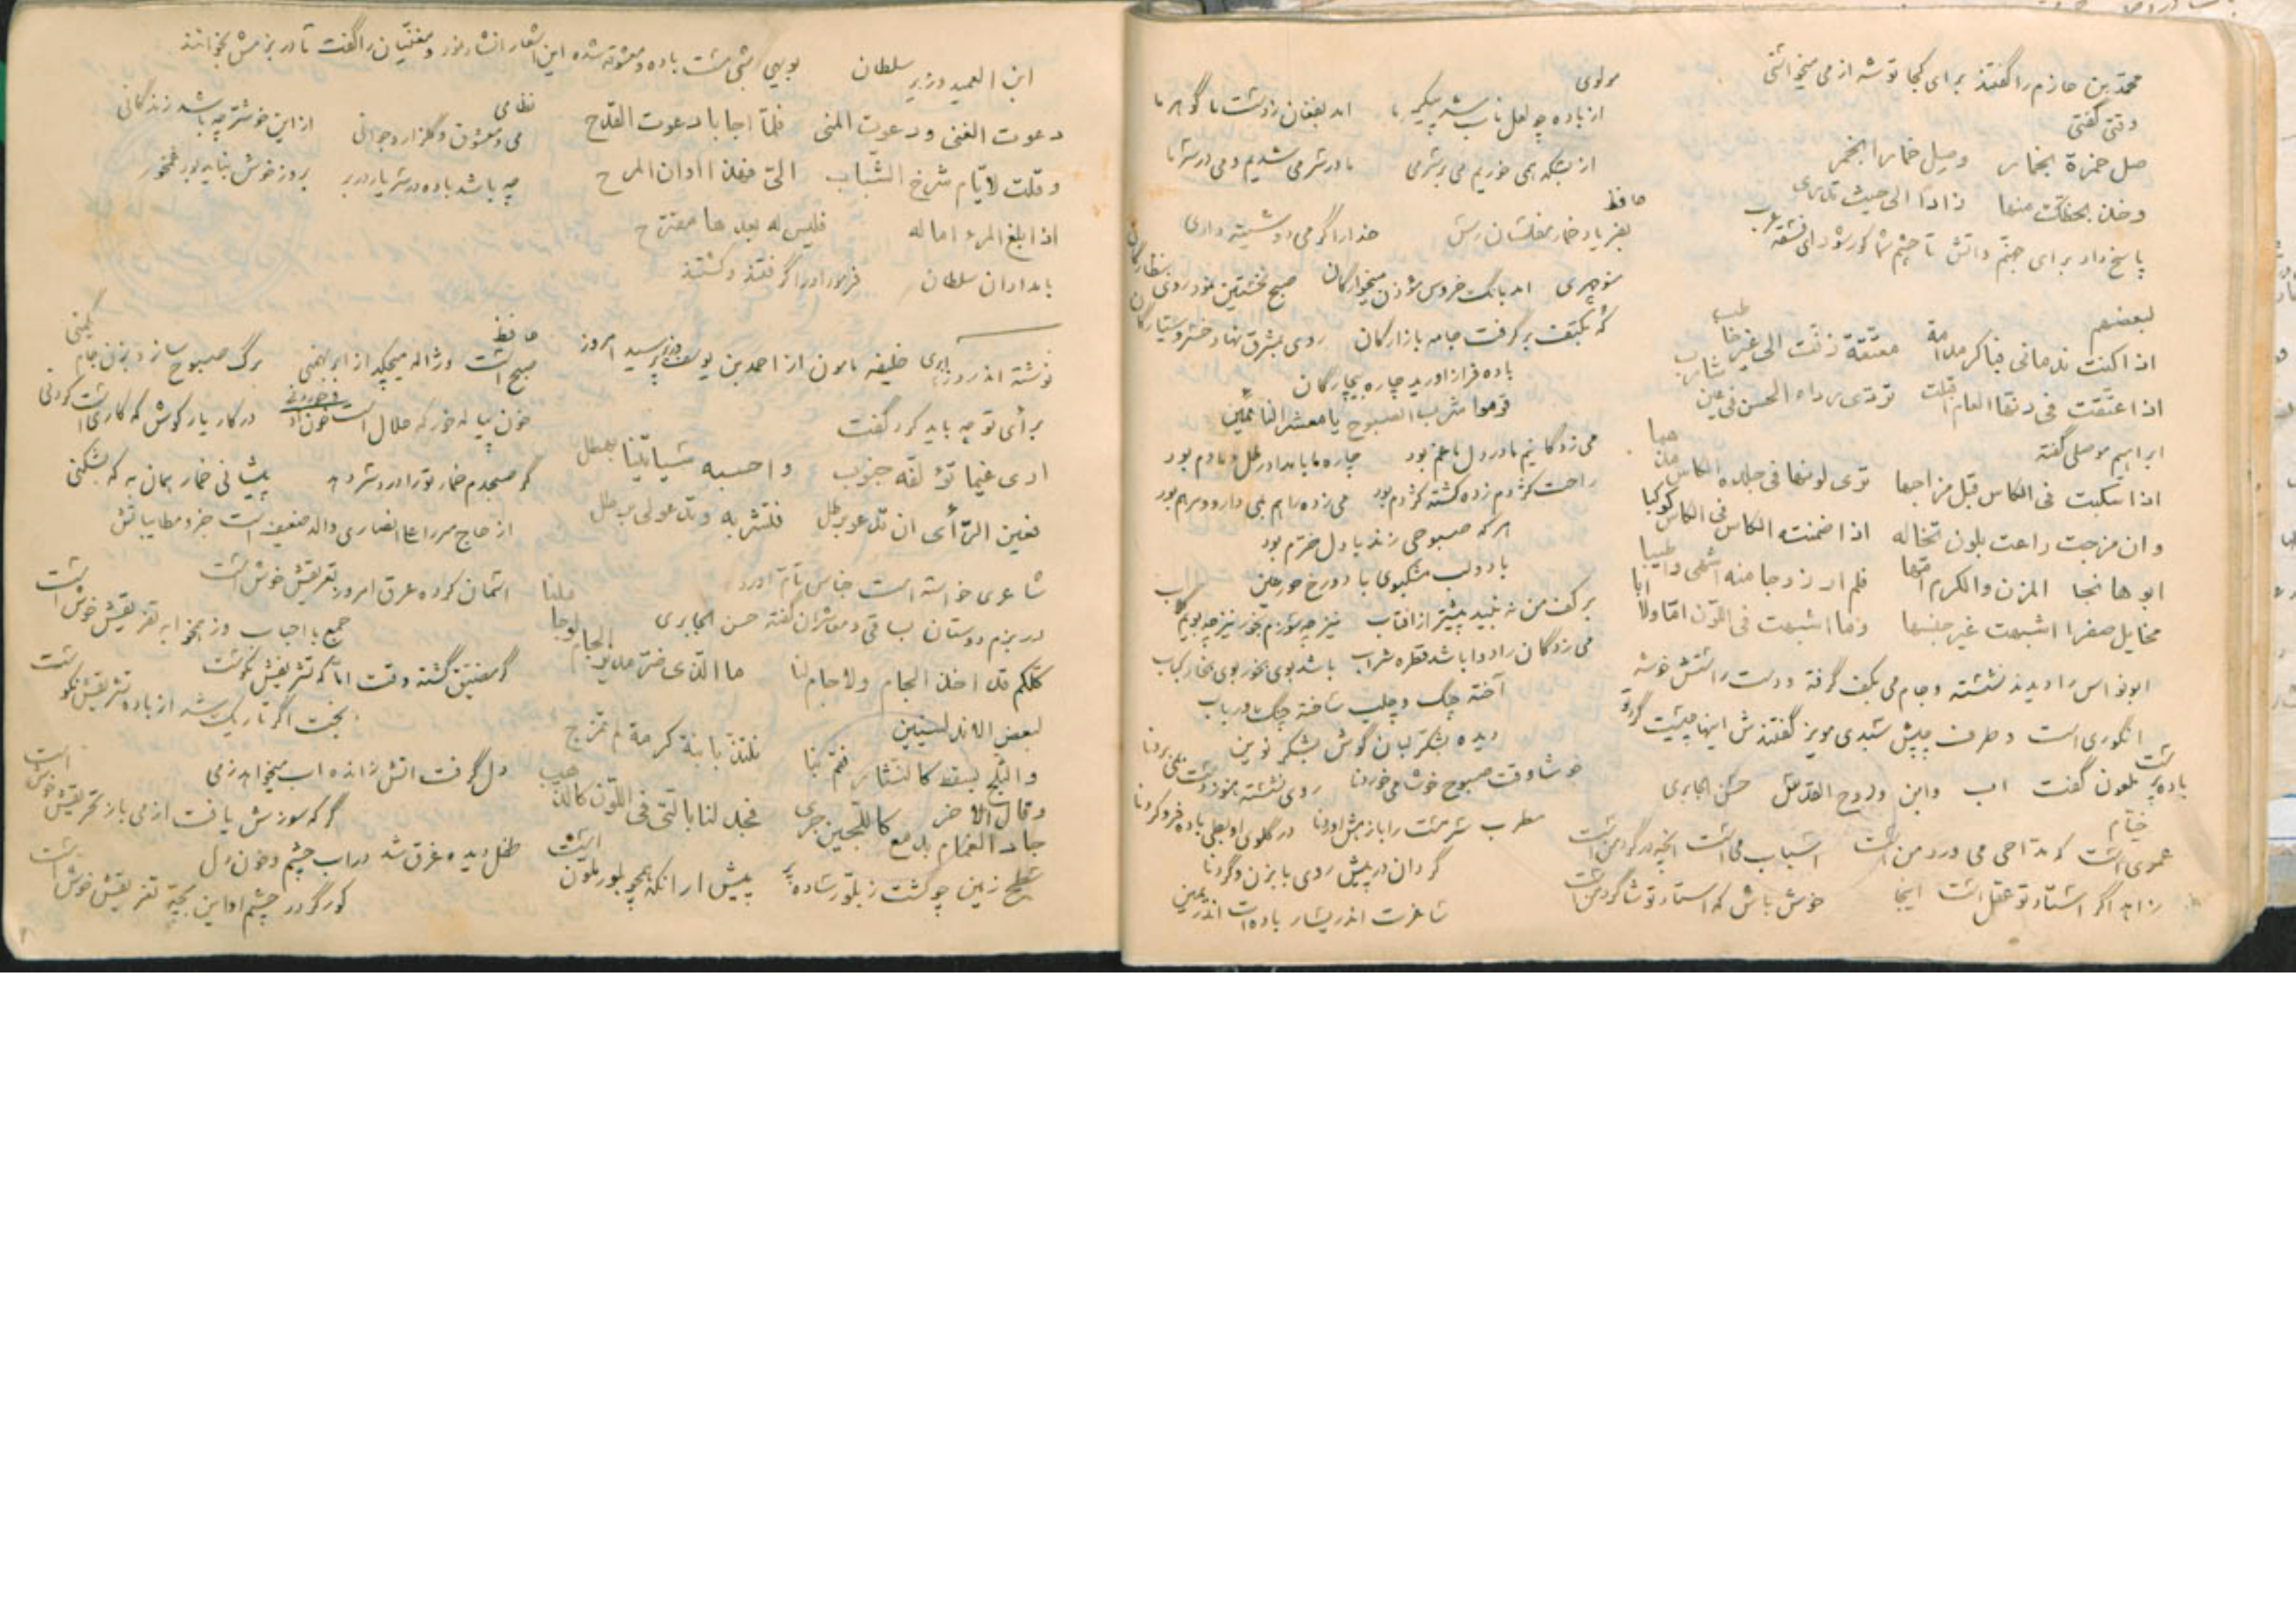 محمد بن حازم را گفتند برای کجا توشه از می میخواستی
وقتی گفتی
صل خمرة بخمار وصل خمارا بخمر
وخذ بحظك منها زادا الی حیث تدری
پاسخ داد برای جهنم واتش تا چشم شما کور شود ای فسقه عرب
لبعضهم
اذا کنت ندمانی فباکر مدامة معتقة زفت الی غیر خاطب
اذا عتقت فی دنها العام اقبلت تردی رداء الحسن فی عین شارب
ابراهیم موصلی گفته
اذا سکبت فی الکاس قبل مزاجها تری لونها فی جلدة الکاس مذهبا
وان مزجت راعت بلون تخاله اذا ضمنته الکاس فی الکاس کوکبا
ابوها نجا المزن والکرم امها فلم ار زوجا منه اشهی واطیبا
مخایل صفرا اشبهت غیر جنسها وما اشبهت فی اللون اما ولا ابا
ابونواس را دیدند نشسته وجام می بکف گرفته ودست راستش خوشه
انگوری است وطرف چپش سبدی مویز گفتندش اینها چیست گرد تست
باده پر بلعون گفت اب وابن وروح القدس حسن الجابری
خیام
عمری است که مداحی می ورد من است اسباب می است انچه در گرد من است
زاهد اگر استاد تو عقل است اینجا خوش باش که استاد تو شاگرد من است
مولوی
از باده چو لعل ناب شد پیکر ما امد بفغان ز دست ما گوهر ما
از بسکه همی خوریم می بر سر می ما در سر می شدیم ومی در سر ما
حافظ
بفریاد خمار مفلسان رس خدارا گر می دوشینه داری
منوچهری امد بانگ خروس موذن میخوارگان صبح نخستین نمود روی بنظارگان
که بکتف برگرفت جامه بازارگان روی بمشرق نهاد خسرو سیارگان
باده فراز اورید چاره بیچارگان
قوموا شرب الصبوح یا معشر النائمین
می زدگانیم ما در دل ما غم بود چاره ما بامداد رطل دمادم بود
راحت کژدم زده کشته کژدم بود می زده را هم بمی دارو ومرهم بود
هر که صبوحی زند با دل خرم بود
با دو لب مشکبوی با دو رخ حور عین
بر کف من نه نبید پیشتر از افتاب نیز چه سوزم بخور نیز چه بویم گلاب
می زدگان را دوا باشد قطره شراب باشد بوی بخور بوی بخار کباب
آخته چنگ وچلب ساخته چنگ ورباب
دیده بشکر لبان گوش بشکر نوین
خوشا وقت صبوح خوشا می خوردنا روی نشسته هنوز دست بمی بردنا
مطرب سرمست را باز هش اوردنا در گلوی او بطی باده فرو کردنا
گردان در پیش روی بابزن وگردنا
ساغرت اندر یسار باده ات اندر یمین
ابن العمید وزیر سلطان بویهی شبی مست باده ومعشوقه شده این اشعار انشا نمود ومغنیان را گفت تا در بزمش بخوانند
دعوت الغنی ودعوت المنی فلما اجابا دعوت القدح
وقلت لایام شرخ الشباب الی فهذا اوان المرح
اذا بلغ المرء اماله فلیس له بعدها مقترح
بامدادان سلطان فرمود او را گرفتند وکشتند
نظامی
می ومعشوق وگلزار وجوانی از این خوشتر چه باشد زندگانی
چه باشد باده در سر یار در بر بروز خوش نباید بود غمخور
نوشته اند روز ابری خلیفه مامون از احمد بن یوسف وزیر پرسید امروز
برأی تو چه باید کرد گفت
اری غیما تؤلفه جنوب واحسبه سیاتینا بهطل
فعین الرأی ان تدعو برطل فتشربه وتدعو لی برطل
شاعری خواسته است جناس تام اورد
در بزم دوستان بساقی ومعاشران گفته حسن الجابری
کلکم قد اخذ الجام ولا جام لنا ما الذی ضر مدیر الجام لو جاملنا
لبعض الاندلسیین
والثلج یسقط کالنثار فقم بنا نلتذ بابنة کرمة لم تمزج
وقال الاخر
جاد الغمام بدمع کاللجین جری فجد لنا بالتی فی اللون کالذهب
سطح زمین چو گشت ز بلور ساده پر پیش ار انکه همچو بلور بلون است
حافظ
صبح است وژاله میچکد از ابر بهمنی برگ صبوح ساز وبزن جام یکمنی
خون پیاله خور که حلال است خون او در کار یار کوش که کاری است کردنی
گر صبحدم خمار تو را درد سر دهد پیشانی خمار همان به که بشکنی
از حاج میرزا علی انصاری والد ضعیف است جزو مطایباتش
اسمان کرده عرق امروز تعریقش خوش است
جمع با احباب وز میخوابه تفریقش خوش است
گر مضیق گشته وقت اما که تشریفش نکوست
بخت اگر تاریک شد از باده تشریقش نکوست
دل گرفت اتش زانده اب میخواهد ز می
گر که سوزش یافت از می باز تحریقش خوش است
طفل دیده غرق شد در اب چشم وخون دل
کور گر در چشم او این بچه تغریقش خوش است